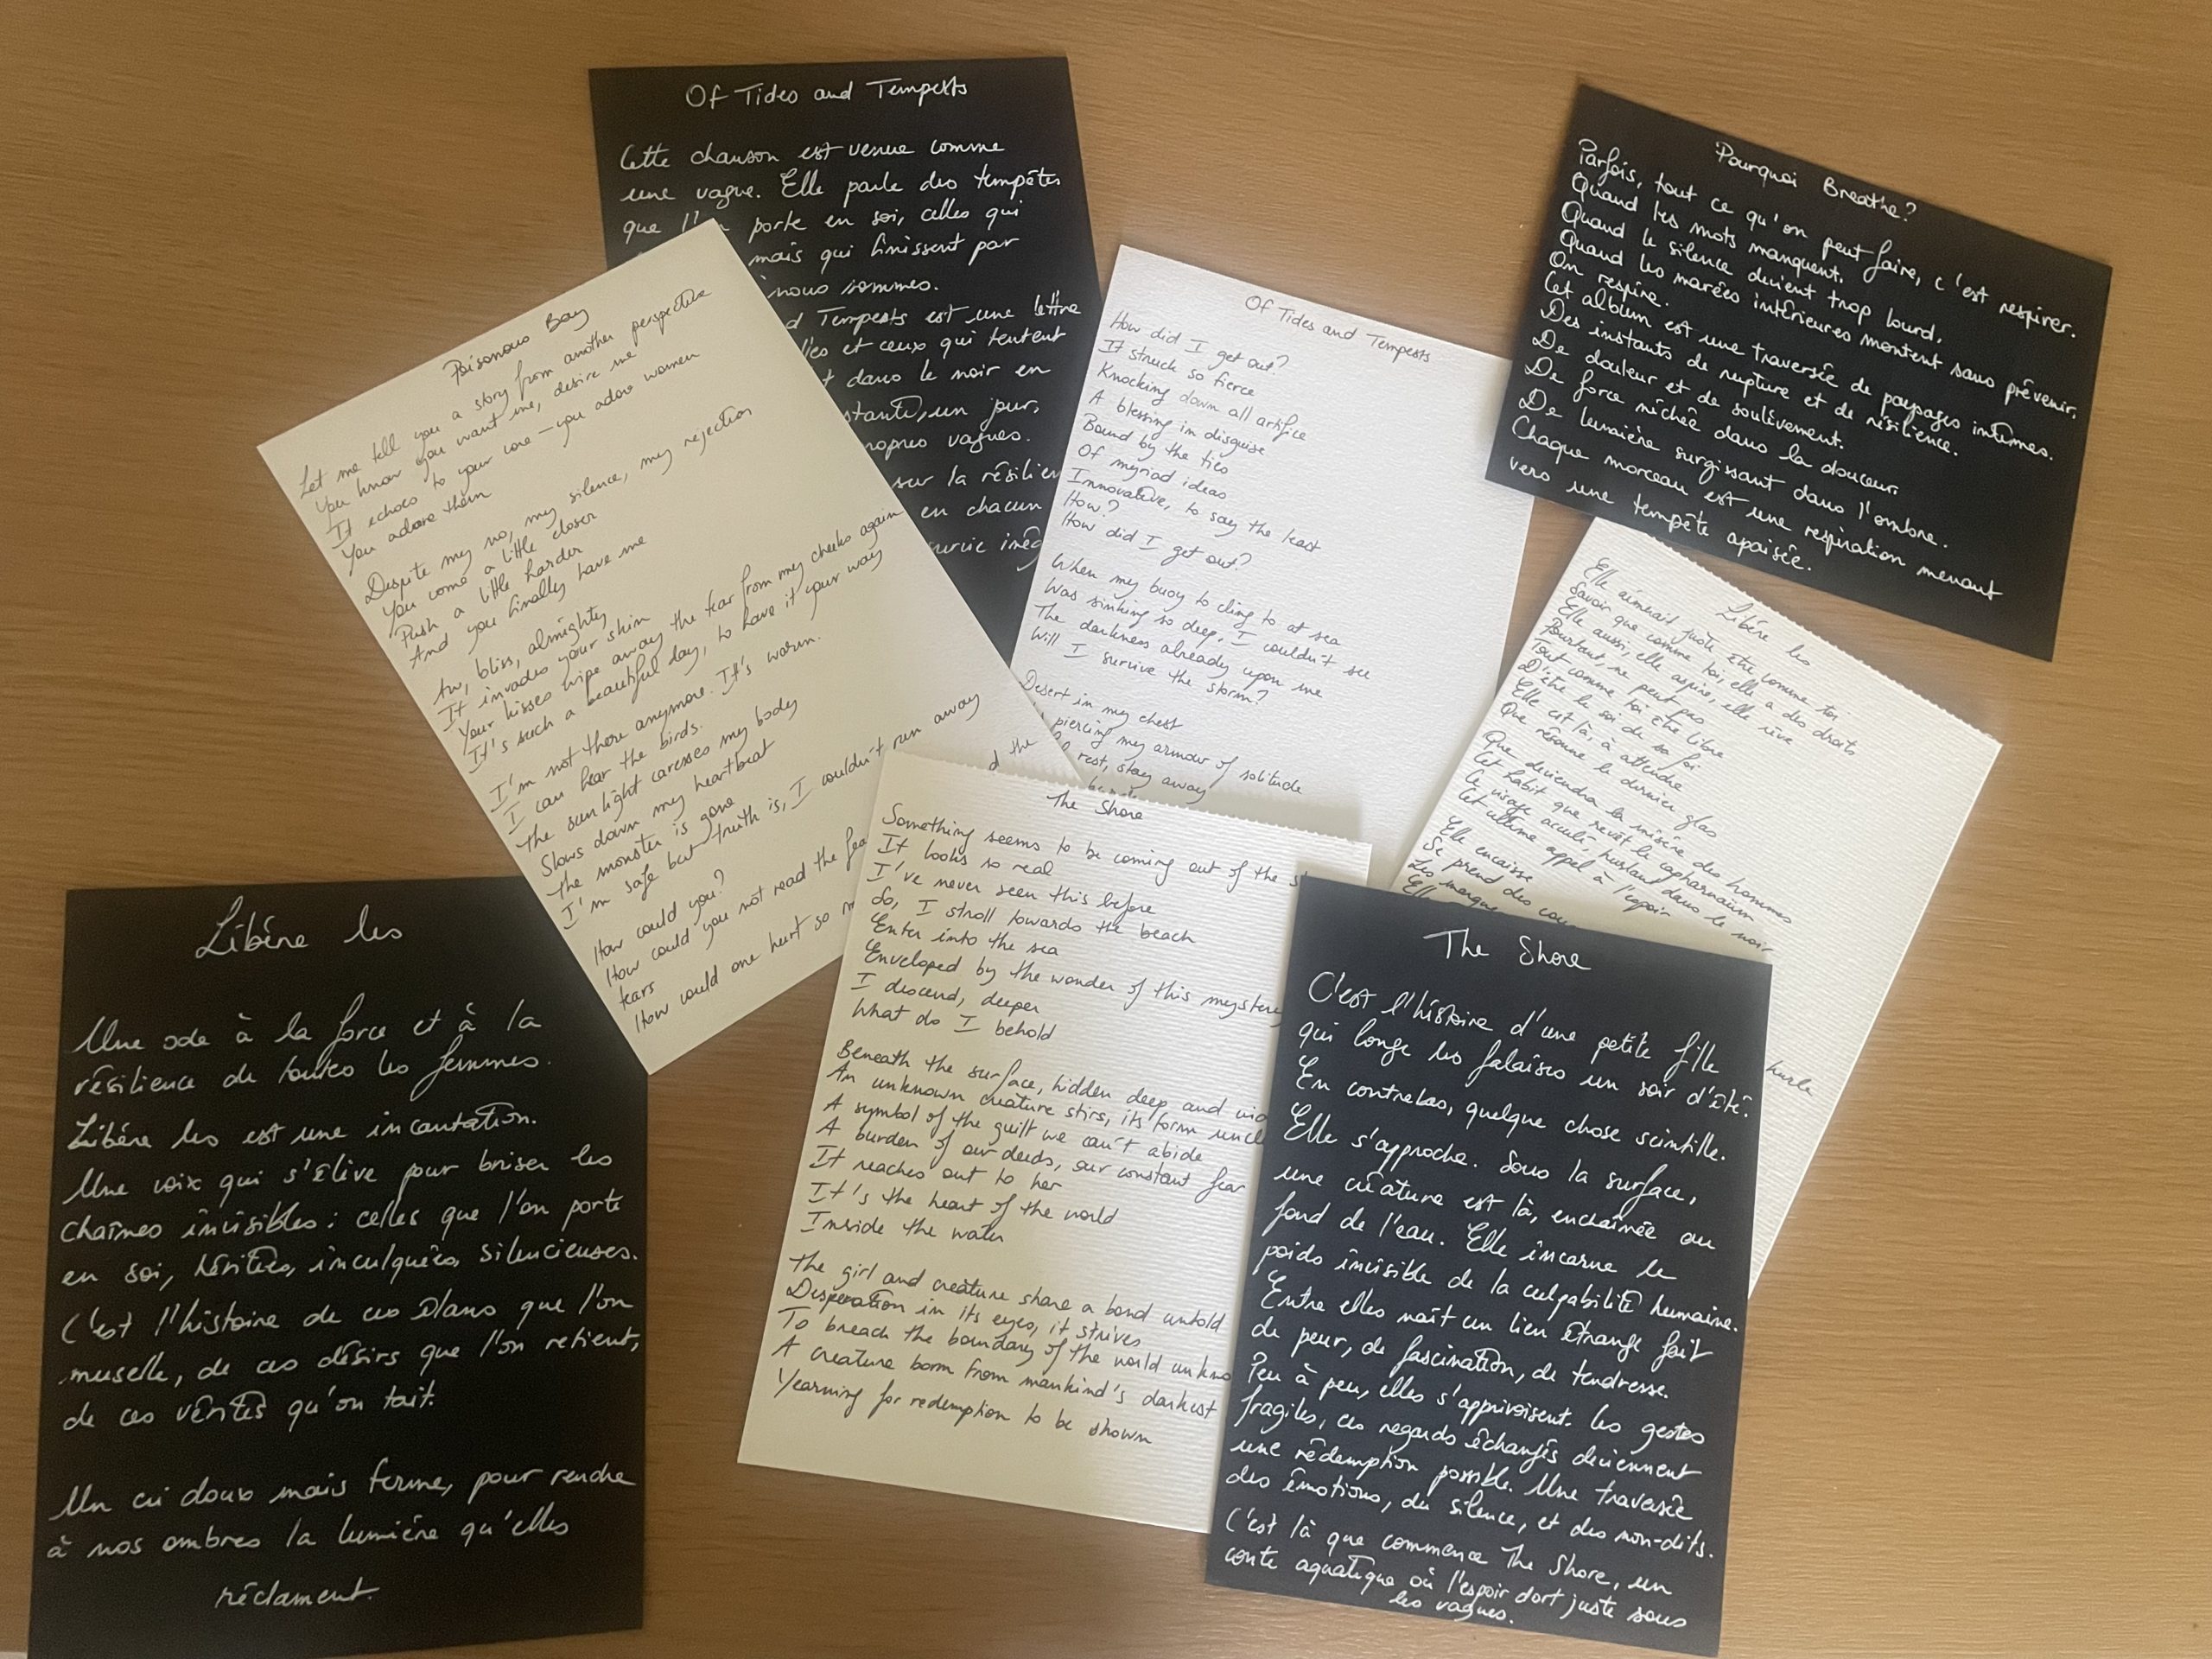 Of Tides and Tempests
Cette chanson est venue comme
une vague. Elle parle des tempêtes
que l'on porte en soi, celles qui
mais qui finissent par
nous sommes.
Tempests est une lettre
et ceux qui tentent
dans le noir en
un jour,
vagues.
sur la résilien
en chacun
Pourquoi Breathe?
Parfois, tout ce qu'on peut faire, c'est respirer.
Quand les mots manquent.
Quand le silence devient trop lourd,
Quand les marées intérieures montent sans prévenir.
On respire.
Cet album est une traversée de paysages intimes.
Des instants de rupture et de résilience.
De douleur et de soulèvement.
De force nichée dans la douceur.
De lumière surgissant dans l'ombre.
Chaque morceau est une respiration menant
vers une tempête apaisée.
Poisonous Bay
Let me tell you a story from another perspective
You know you want me, desire me
It echoes to your core - you adore women
You adore them
Despite my no, my silence, my rejection
You come a little closer
Push a little harder
And you finally have me
Aw, bliss, almighty
It invades your skin
Your kisses wipe away the tear from my cheeks again
It's such a beautiful day, to have it your way
I'm not there anymore. It's warm.
I can hear the birds.
The sunlight caresses my body
Slows down my heartbeat
The monster is gone
I'm safe but truth is, I couldn't run away
How could you?
How could you not read the
tears
How could one hurt so
Of Tides and Tempests
How did I get out?
It struck so fierce
Knocking down all artifice
A blessing in disguise
Bound by the ties
Of myriad ideas
Innovative, to say the least
How?
How did I get out?
When my buoy to cling to at sea
Was sinking so deep, I couldn't see
The darkness already upon me
Will I survive the storm?
Desert in my chest
piercing my armour of solitude
rest, stay away
Libère les
Elle aimerait juste être comme toi
Savoir que comme toi, elle a des droits
Elle aussi, elle aspire, elle rêve
Pourtant, ne peut pas
Tout comme toi être libre
D'être la soi de sa foi
Elle est là, à attendre
Que résonne le dernier glas
Que deviendra la misère des hommes
Cet habit que revêt le capharnaüm
Ce visage acculé, hurlant dans le noir
Cet ultime appel à l'espoir
Elle encaisse
Se prend des
Les
Elle
hurle
The Shore
Something seems to be coming out of the
It looks so real
I've never seen this before
So, I stroll towards the beach
Enter into the sea
Enveloped by the wonder of this mystery
I descend, deeper
What do I behold
Beneath the surface, hidden deep and
An unknown creature stirs, its form
A symbol of the guilt we can't abide
A burden of our deeds, our constant fear
It reaches out to her
It's the heart of the world
Inside the water
The girl and creature share a bond untold
Desperation in its eyes, it strives
To breach the boundary of the world
A creature born from mankind's darkest
Yearning for redemption to be shown
Libère les
Une ode à la force et à la
résilience de toutes les femmes.
Libère les est une incantation.
Une voix qui s'élève pour briser les
chaînes invisibles : celles que l'on porte
en soi, héritées, inculquées, silencieuses.
C'est l'histoire de ces élans que l'on
muselle, de ces désirs que l'on retient,
de ces vérités qu'on tait.
Un cri doux mais ferme, pour rendre
à nos ombres la lumière qu'elles
réclament.
The Shore
C'est l'histoire d'une petite fille
qui longe les falaises un soir d'été.
En contrebas, quelque chose scintille.
Elle s'approche. Sous la surface,
une créature est là, enchaînée au
fond de l'eau. Elle incarne le
poids invisible de la culpabilité humaine.
Entre elles naît un lien étrange fait
de peur, de fascination, de tendresse.
Peu à peu, elles s'apprivoisent. Les gestes
fragiles, ces regards échangés deviennent
une rédemption possible. Une traversée
des émotions, du silence, et des non-dits.
C'est là que commence The Shore, un
conte aquatique où l'espoir dort juste sous
les vagues.